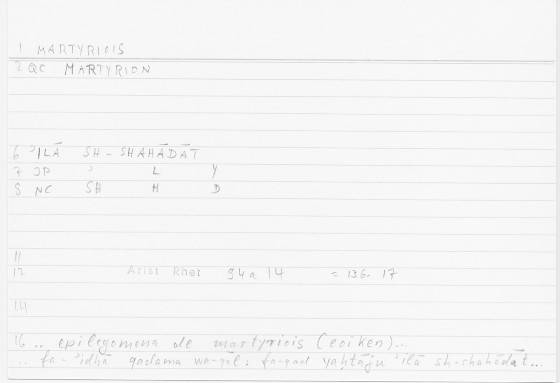 1 MARTYRIOIS
2 QC MARTYRION
6 ʾILĀ SH-SHAHĀDĀT
7 JP ʾ L Y
8 NC SH H D
11
12 Arist Rhet 94a 14 = 136. 17
14
16 .. epilegomena de martyriois (eoiken)...
.. fa-ʾidhā qadama wa-qāl: fa-qad yaḥtāju ʾilā sh-shahādāt...